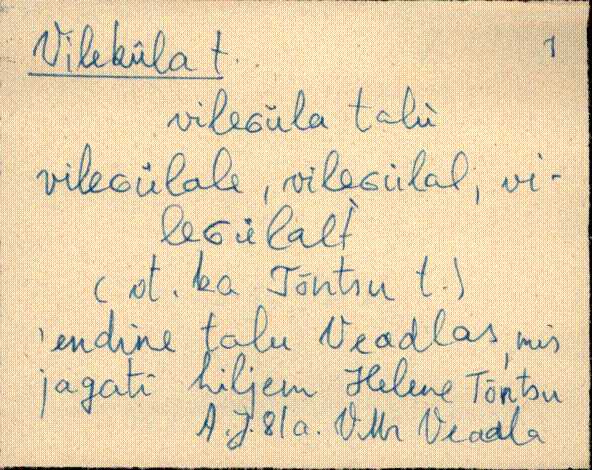 Vileküla t. 1
vileGüla talù
vileGülale, vileGülal, vi-
leGülalt̀
( vt. ka Tõntsu t.)
'endine talu Veadlas, mis
jagati hiljem Helene Tõntsu
A. J. 81a. VMr Veadla